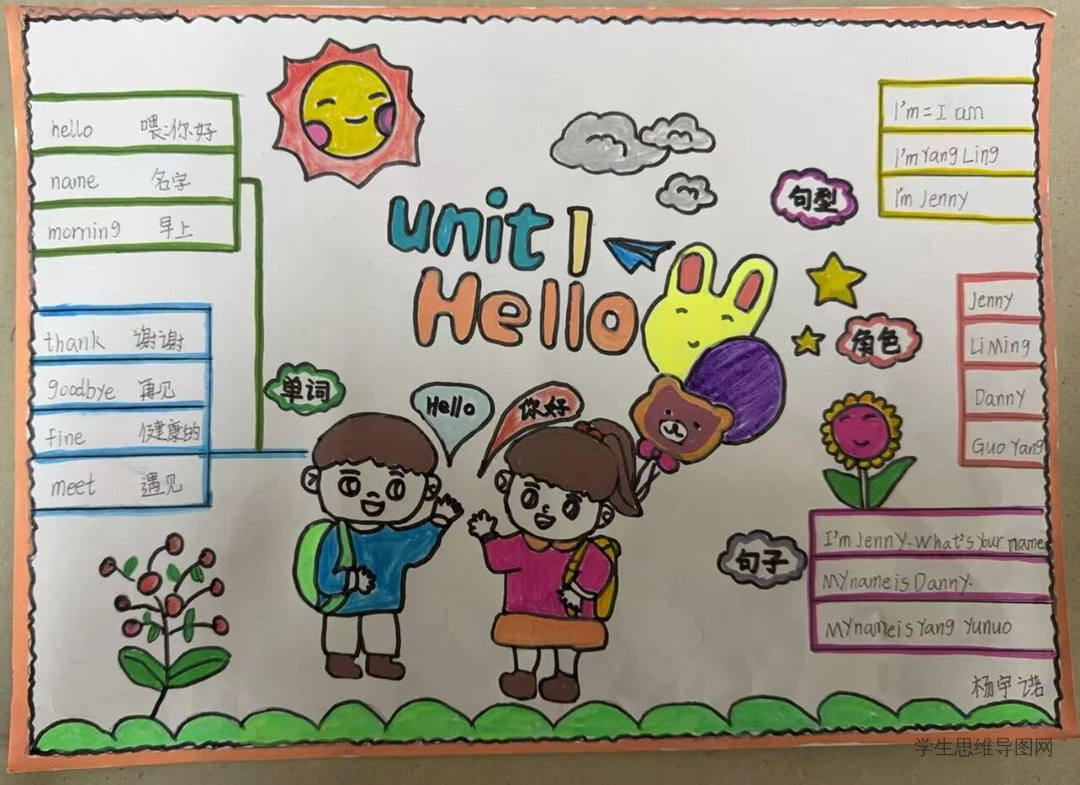 unit 1
Hello
hello 喂;你好
name 名字
morning 早上
thank 谢谢
goodbye 再见
fine 健康的
meet 遇见
单词
Hello
你好
句型
I'm = I am
I'm Yang Ling
I'm Jenny
角色
Jenny
Li Ming
Danny
Guo Yang
句子
I'm Jenny. What's your name
My name is Danny.
My name is Yang Yunuo
杨宇诺
学生思维导图网